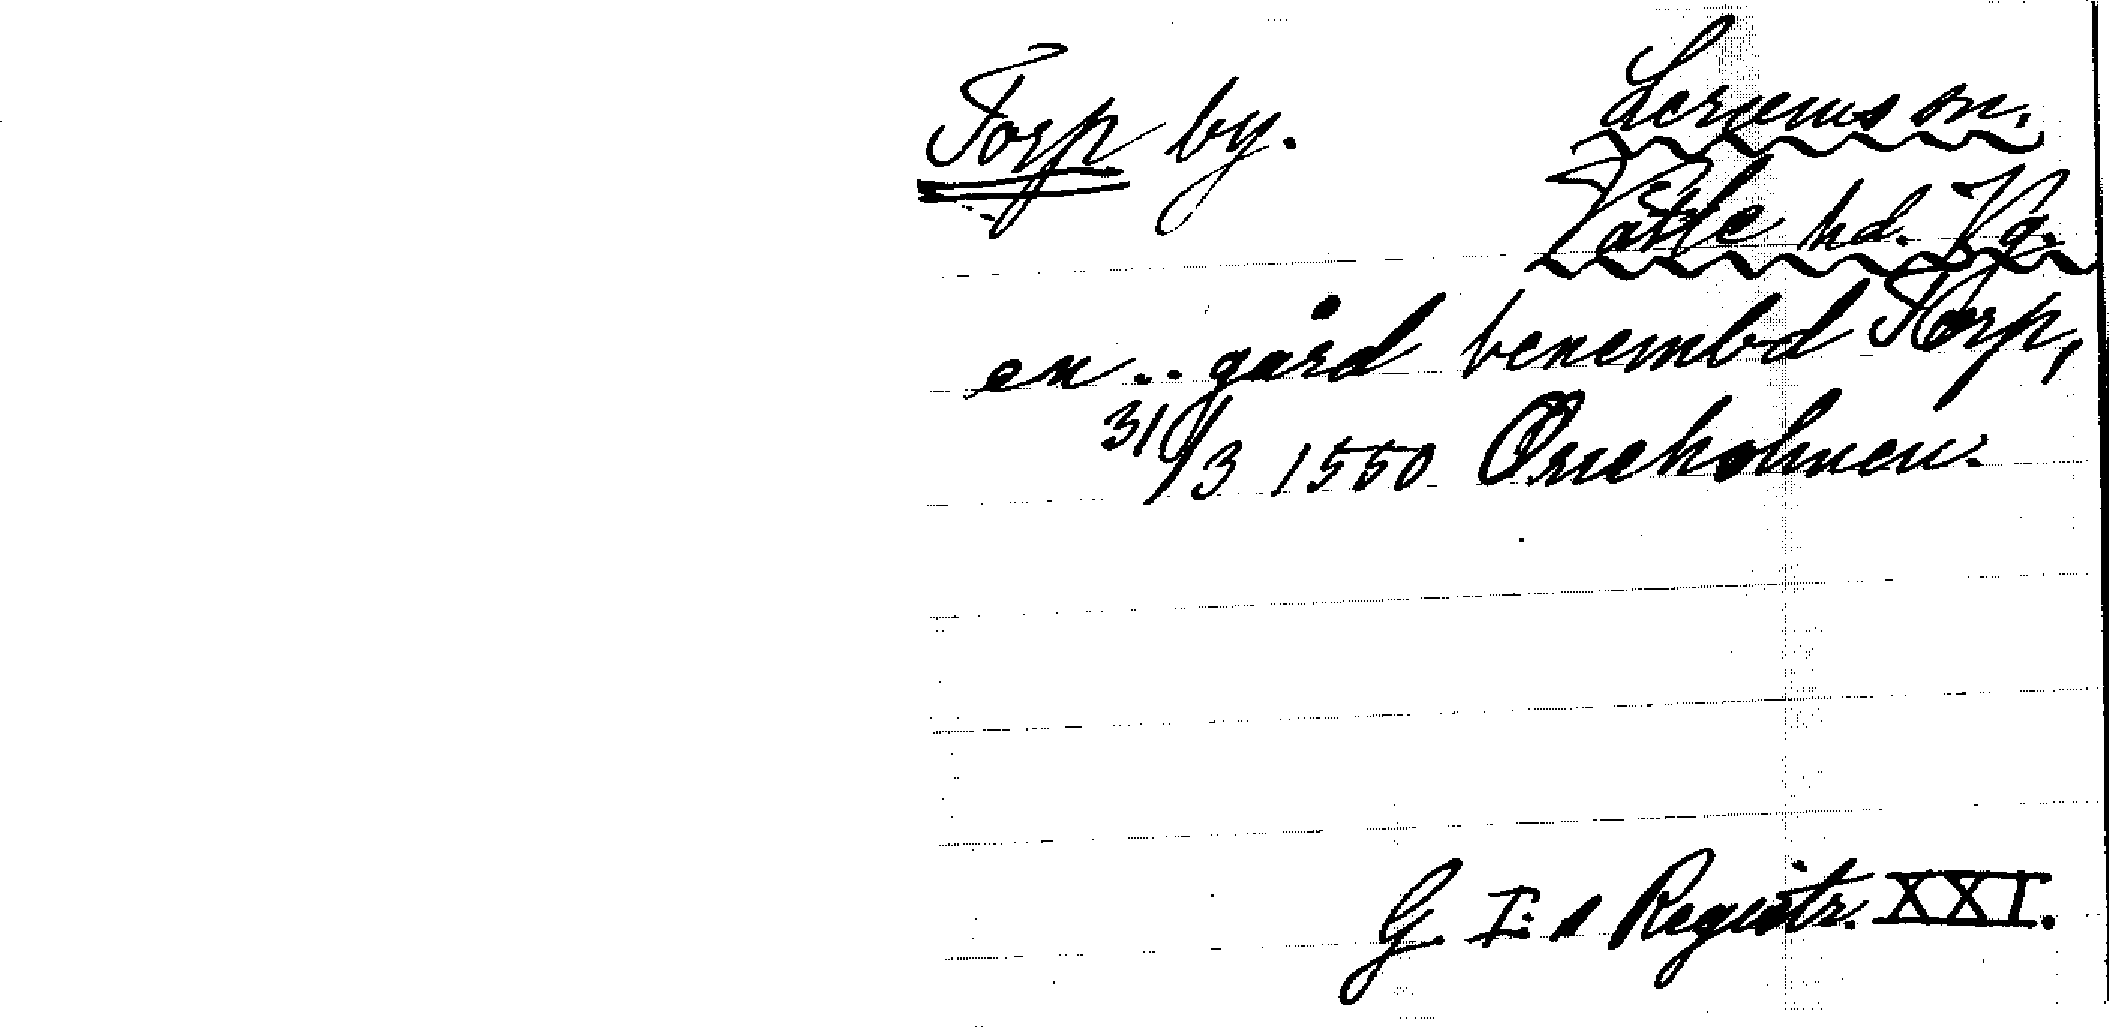 Torp by. Lerums sn.
Vättle hd. Vg.
en .. gård benembd Torp,
31/3 1550 Öneholmen.
G. I:s Registr. XXI.